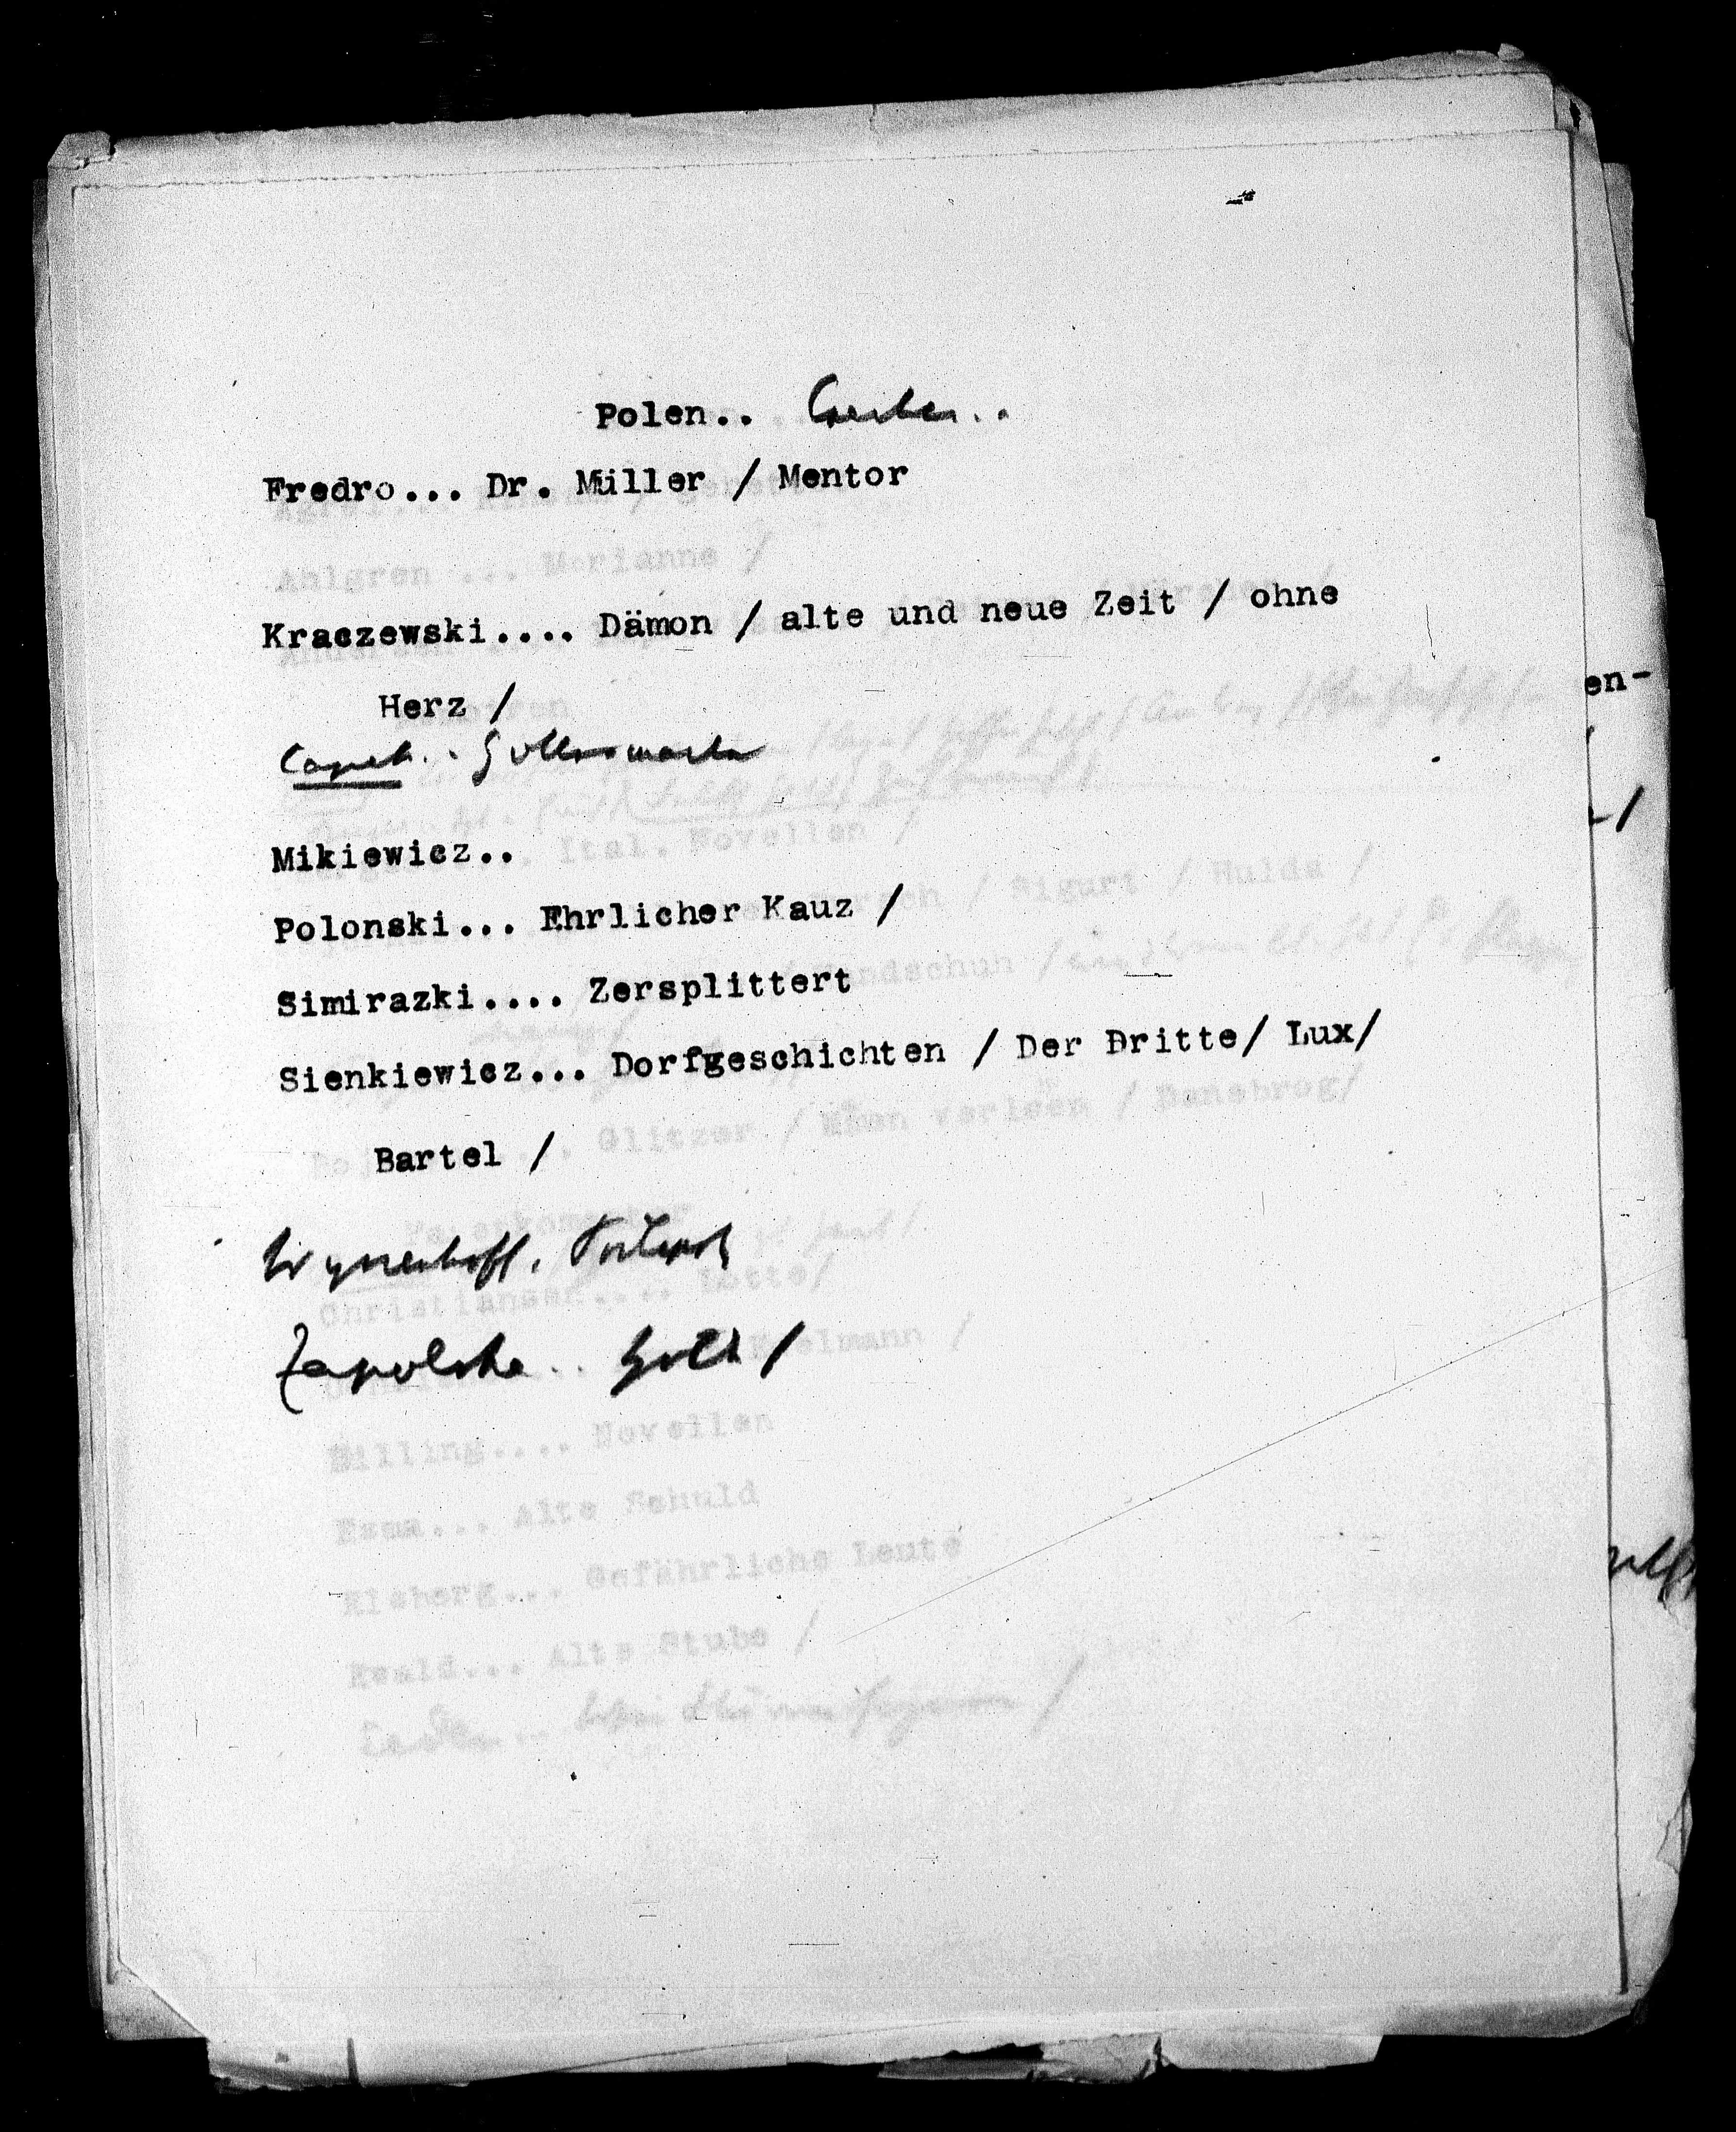 Polen..
Fredro... Dr. Müller / Mentor
Kraczewski.... Dämon / alte und neue Zeit / ohne
Herz /
Capek..
Mikiewicz..
Polonski... Ehrlicher Kauz /
Simirazki.... Zersplittert
Sienkiewicz... Dorfgeschichten / Der Dritte/ Lux/
Bartel /
Zapolska..
en-